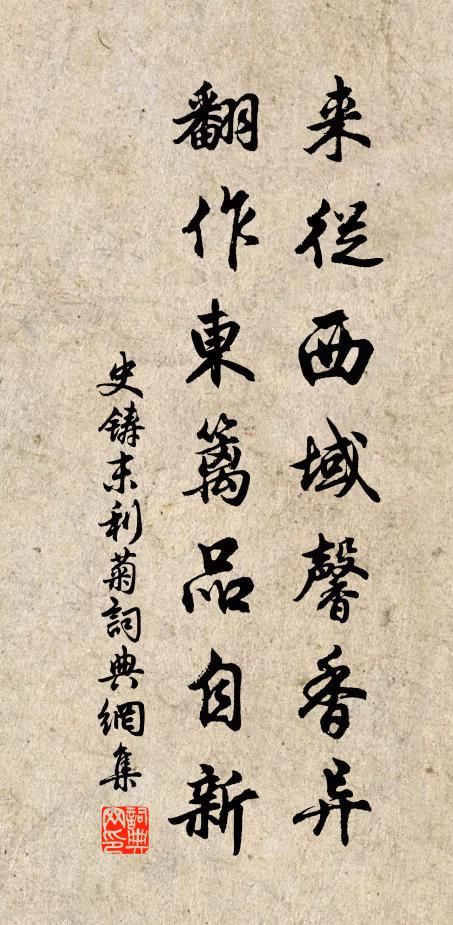 来從西域馨香异
翻作東篱品自新
史鑄末利菊詞典網集
詞典网印